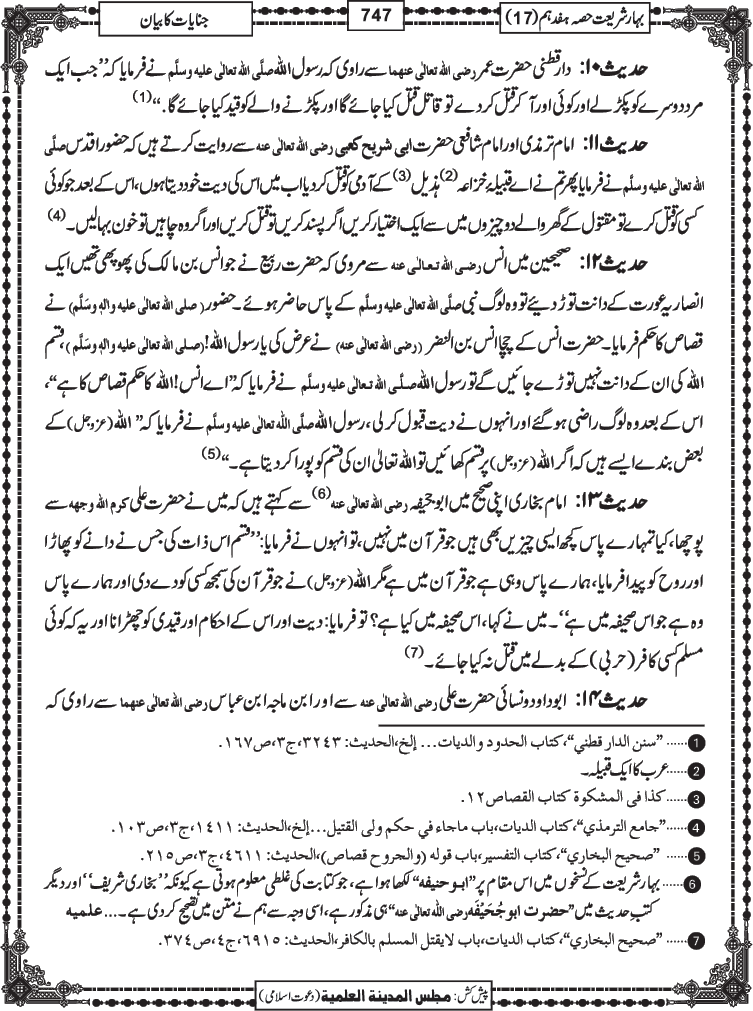 بہارِ شریعت حصہ ہفدہم (17)
747
جنایات کا بیان
حدیث ۱۰: دارقطنی حضرت عمر رضی اللہ تعالٰی عنہما سے راوی کہ رسول اللہ صلَّی اللہ تعالٰی علیہ وسلَّم نے فرمایا کہ ”جب ایک
مرد دوسرے کو پکڑلے اور کوئی اور آکر قتل کر دے تو قاتل قتل کیا جائے گا اور پکڑنے والے کو قید کیا جائے گا۔“ (1)
حدیث ۱۱: امام ترمذی اور امام شافعی حضرت ابی شریح کعبی رضی اللہ تعالٰی عنہ سے روایت کرتے ہیں کہ حضور اقدس صلَّی
اللہ تعالٰی علیہ وسلَّم نے فرمایا پھر تم نے اے قبیلہ خزاعہ (2) ہُذیل (3) کے آدمی کو قتل کر دیا اب میں اس کی دیت خود دیتا ہوں، اس کے بعد جو کوئی
کسی کو قتل کرے تو مقتول کے گھر والے دو چیزوں میں سے ایک اختیار کریں اگر پسند کریں تو قتل کریں اور اگر وہ چاہیں تو خون بہا لیں۔ (4)
حدیث ۱۲: صحیحین میں انس رضی اللہ تعالٰی عنہ سے مروی کہ حضرت ربیع نے جو انس بن مالک کی پھوپھی تھیں ایک
انصاریہ عورت کے دانت توڑ دیئے تو وہ لوگ نبی صلَّی اللہ تعالٰی علیہ وسلَّم کے پاس حاضر ہوئے۔ حضور (صلی اللہ تعالٰی علیہ والہٖ وسَلَّم) نے
قصاص کا حکم فرمایا۔ حضرت انس کے چچا انس بن النضر (رضی اللہ تعالٰی عنہ) نے عرض کی یارسول اللہ! (صلی اللہ تعالٰی علیہ والہٖ وسَلَّم)، قسم
اللہ کی ان کے دانت نہیں توڑے جائیں گے تو رسول اللہ صلَّی اللہ تعالٰی علیہ وسلَّم نے فرمایا کہ ”اے انس! اللہ کا حکم قصاص کا ہے“،
اس کے بعد وہ لوگ راضی ہو گئے اور انہوں نے دیت قبول کر لی، رسول اللہ صلَّی اللہ تعالٰی علیہ وسلَّم نے فرمایا کہ ”اللہ (عزوجل) کے
بعض بندے ایسے ہیں کہ اگر اللہ (عزوجل) پر قسم کھائیں تو اللہ تعالیٰ ان کی قسم کو پورا کر دیتا ہے۔“ (5)
حدیث ۱۳: امام بخاری اپنی صحیح میں ابو جحیفہ رضی اللہ تعالٰی عنہ (6) سے کہتے ہیں کہ میں نے حضرت علی کرم اللہ وجہہ سے
پوچھا، کیا تمہارے پاس کچھ ایسی چیزیں بھی ہیں جو قرآن میں نہیں، تو انہوں نے فرمایا: ”قسم اس ذات کی جس نے دانے کو پھاڑا
اور روح کو پیدا فرمایا، ہمارے پاس وہی ہے جو قرآن میں ہے مگر اللہ (عزوجل) نے جو قرآن کی سمجھ کسی کو دے دی اور ہمارے پاس
وہ ہے جو اس صحیفہ میں ہے“۔ میں نے کہا، اس صحیفہ میں کیا ہے؟ تو فرمایا: دیت اور اس کے احکام اور قیدی کو چھڑانا اور یہ کہ کوئی
مسلم کسی کافر (حربی) کے بدلے میں قتل نہ کیا جائے۔ (7)
حدیث ۱۴: ابوداود و نسائی حضرت علی رضی اللہ تعالٰی عنہ سے اور ابن ماجہ ابن عباس رضی اللہ تعالٰی عنہما سے راوی کہ
1 ...... ”سنن الدار قطني“، کتاب الحدود والدیات... إلخ، الحدیث: ۳۲۴۳، ج۳، ص۱۶۷.
2 ...... عرب کا ایک قبیلہ۔
3 ...... کذا فی المشکوة کتاب القصاص ۱۲.
4 ...... ”جامع الترمذي“، کتاب الدیات، باب ماجاء في حکم ولی القتیل... إلخ، الحدیث: ۱۴۱۱، ج۳، ص۱۰۳.
5 ...... ”صحیح البخاري“، کتاب التفسیر، باب قوله (والجروح قصاص)، الحدیث: ۴۶۱۱، ج۳، ص۲۱۵.
6 ...... بہار شریعت کے نسخوں میں اس مقام پر ”ابو حنیفہ“ لکھا ہوا ہے، جو کتابت کی غلطی معلوم ہوتی ہے کیونکہ ”بخاری شریف“ اور دیگر
کتب حدیث میں ”حضرت ابو جُحَیْفَہ رضی اللہ تعالٰی عنہ“ ہی مذکور ہے، اسی وجہ سے ہم نے متن میں تصحیح کر دی ہے۔... علمیہ
7 ...... ”صحیح البخاري“، کتاب الدیات، باب لایقتل المسلم بالکافر، الحدیث: ۶۹۱۵، ج۴، ص۳۷۴.
پیش کش: مجلس المدینة العلمیة (دعوت اسلامی)